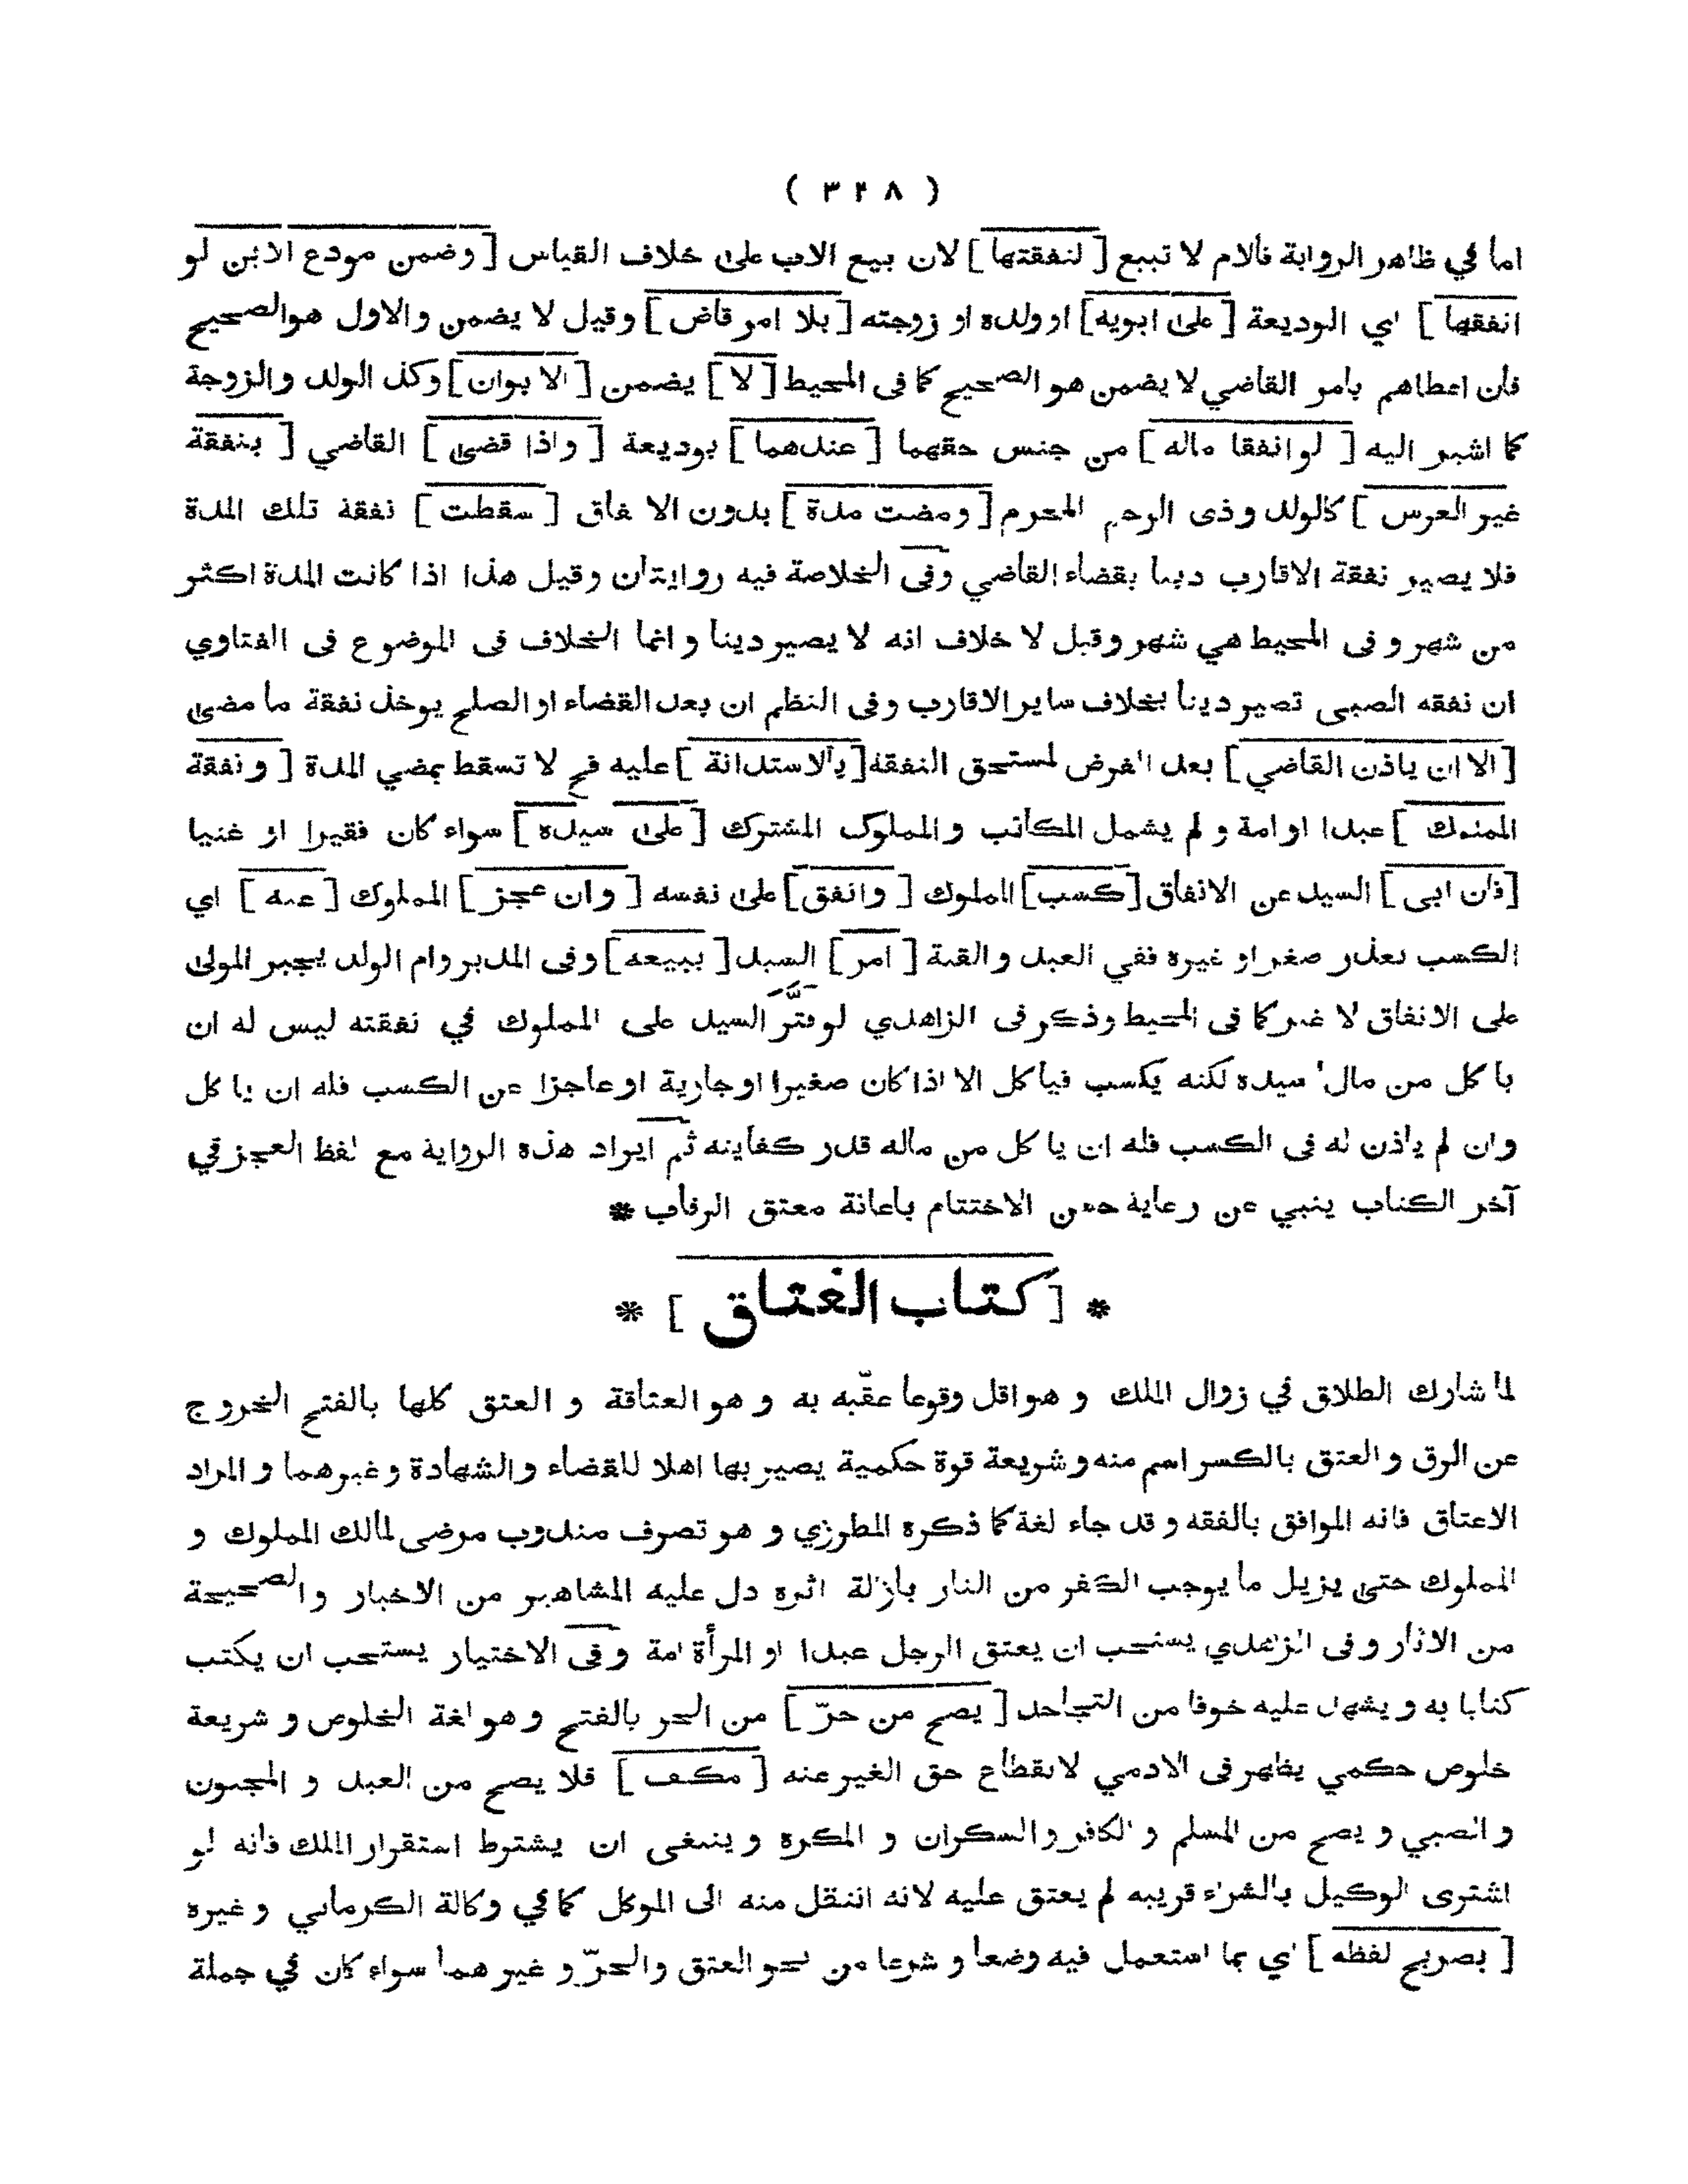 ( ٣٢٨ )
اما في ظاهر الرواية فالام لا تبيع [ لنفقتها ] لان بيع الاب على خلاف القياس [ وضمن مودع الابن لو
انفقها ] اي الوديعة [ على ابويه ] او ولده او زوجته [ بلا امر قاض ] وقيل لا يضمن والاول هو الصحيح
فان اعطاهم بامر القاضي لا يضمن هو الصحيح كما فى المحيط [ لا ] يضمن [ الابوان ] وكذ الولد والزوجة
كما اشير اليه [ لو انفقا ماله ] من جنس حقهما [ عندهما ] بوديعة [ واذا قضى ] القاضي [ بنفقة
غير العرس ] كالولد وذى الرحم المحرم [ ومضت مدة ] بدون الانفاق [ سقطت ] نفقة تلك المدة
فلا يصير نفقة الاقارب دينا بقضاء القاضي وفى الخلاصة فيه روايتان وقيل هذا اذا كانت المدة اكثر
من شهر و فى المحيط هي شهر وقيل لا خلاف انه لا يصير دينا و انما الخلاف فى الموضوع فى الفتاوي
ان نفقه الصبى تصير دينا بخلاف ساير الاقارب وفى النظم ان بعد القضاء او الصلح يوخذ نفقة ما مضى
[ الا ان ياذن القاضي ] بعد الفرض لمستحق النفقه [ بالاستدانة ] عليه فح لا تسقط بمضي المدة [ و نفقة
المملوك ] عبدا او امة و لم يشمل المكاتب و المملوك المشترك [ على سيده ] سواء كان فقيرا او غنيا
[ فان ابى ] السيد عن الانفاق [ كسب ] المملوك [ وانفق ] على نفسه [ وان عجز ] المملوك [ عنه ] اي
الكسب بعذر صغر او غيره ففي العبد والقنة [ امر ] السيد [ ببيعه ] وفى المدبر وام الولد يجبر المولى
على الانفاق لا غير كما فى المحيط وذكر فى الزاهدي لو قتَّر السيد على المملوك في نفقته ليس له ان
ياكل من مال سيده لكنه يكسب فياكل الا اذا كان صغيرا او جارية او عاجزا عن الكسب فله ان ياكل
وان لم ياذن له فى الكسب فله ان ياكل من ماله قدر كفاينه ثم ايراد هذه الرواية مع لفظ العجز في
آخر الكتاب ينبي عن رعاية حسن الاختتام باعانة معتق الرقاب *
* [ كتاب العتاق ] *
لما شارك الطلاق في زوال الملك و هو اقل وقوعا عقّبه به و هو العتاقة و العتق كلها بالفتح الخروج
عن الرق و العتق بالكسر اسم منه و شريعة قوة حكمية يصير بها اهلا للقضاء والشهادة وغيرهما والمراد
الاعتاق فانه الموافق بالفقه و قد جاء لغة كما ذكره المطرزي و هو تصرف مندوب مرضى لمالك المملوك و
المملوك حتى يزيل ما يوجب الكفر من النار بازالة اثره دل عليه المشاهير من الاخبار و الصحيحة
من الاثار و فى الزاهدي يستحب ان يعتق الرجل عبدا او المرأة امة وفى الاختيار يستحب ان يكتب
كتابا به و يشهد عليه خوفا من التجاحد [ يصح من حرّ ] من الحر بالفتح و هو لغة الخلوص و شريعة
خلوص حكمي يظهر فى الادمي لانقطاع حق الغير عنه [ مكلف ] فلا يصح من العبد و المجنون
و الصبي و يصح من المسلم و الكافر و السكران و المكره و ينبغى ان يشترط استقرار الملك فانه لو
اشترى الوكيل بالشراء قريبه لم يعتق عليه لانه انتقل منه الى الموكل كما في وكالة الكرماني و غيره
[ بصريح لفظه ] اي بما استعمل فيه وضعا و شرعا من نحو العتق والحرّ و غيرهما سواء كان في جملة